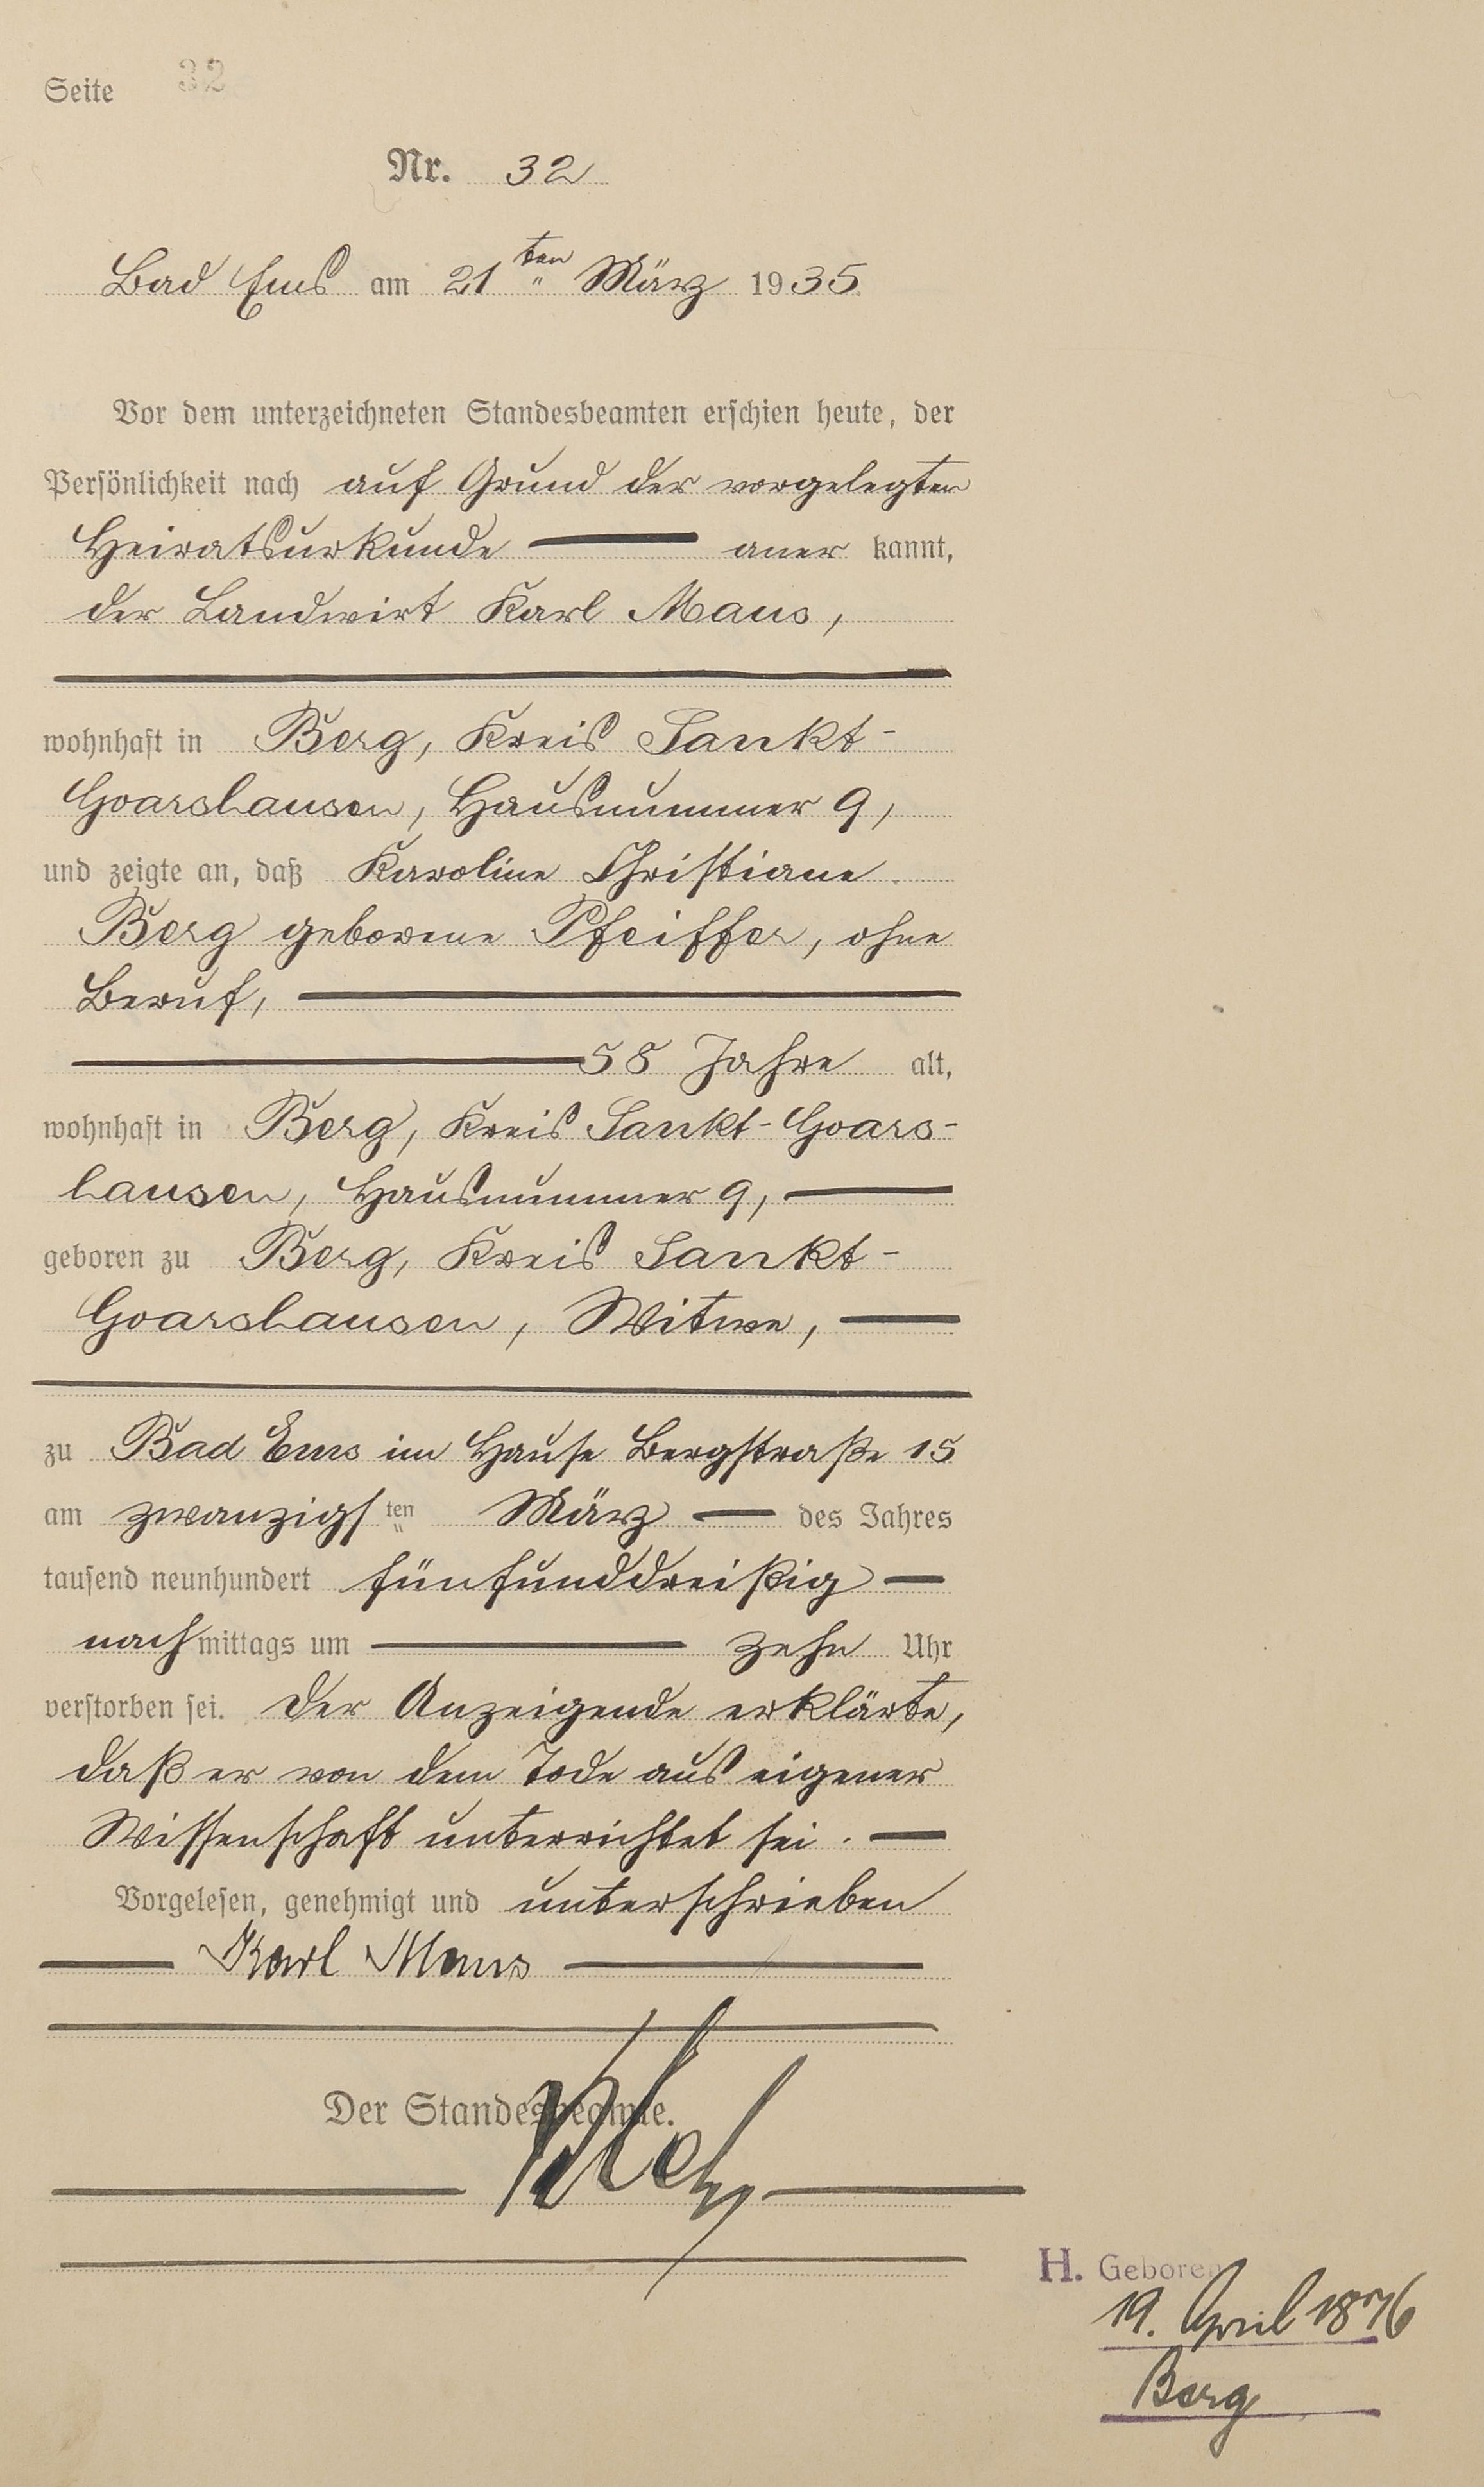 Seite 32
Nr. 32
Bad Ems am 21 ten März 1935.
Vor dem unterzeichneten Standesbeamten erschien heute, der
Persönlichkeit nach auf Grund der vorgelegten
Heiratsurkunde aner kannt,
der Landwirt Karl Maus,
wohnhaft in Berg, Kreis Sankt-
Goarshausen, Hausnummer 9,
und zeigte an, daß Karoline Christiane
Berg geborene Pfeiffer, ohne
Beruf,
58 Jahre alt,
wohnhaft in Berg, Kreis Sankt-Goars-
hausen, Hausnummer 9,
geboren zu Berg, Kreis Sankt-
Goarshausen, Witwe,
zu Bad Ems im Hause Bergstraße 15
am zwanzigsten März des Jahres
tausend neunhundert fünfunddreißig
nachmittags um zehn Uhr
verstorben sei. Der Anzeigende erklärte,
daß er von dem Tode aus eigener
Wissenschaft unterrichtet sei.
Vorgelesen, genehmigt und unterschrieben
Karl Maus
Der Standesbeamte.
H. Geboren
19. April 1876
Berg